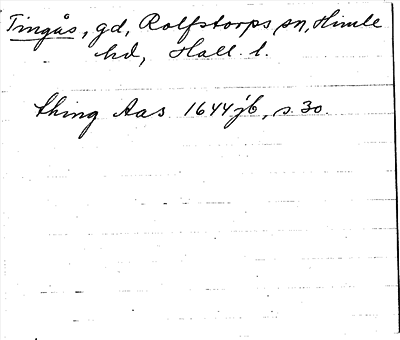 Tingås, gd, Rolfstorps sn, Himle
hd, Hall. l.
thing Aas 1644 jb, s. 30.